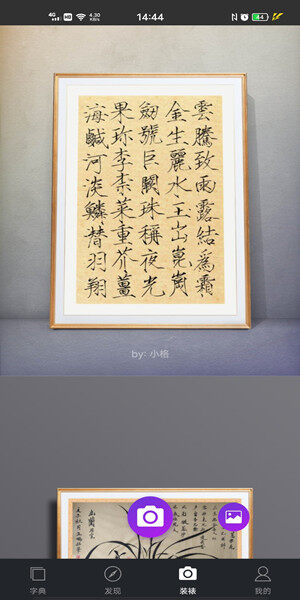 4G HD 4.30 KB/s 14:44 44
雲騰致雨露結爲霜
金生麗水玉出崑崗
劒號巨闕珠稱夜光
果珎李柰菜重芥薑
海鹹河淡鱗潛羽翔
by: 小格
字典 发现 装裱 我的